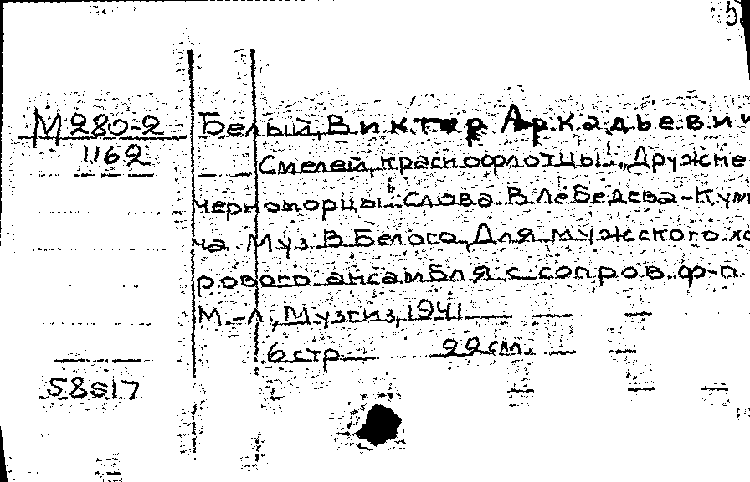 М 280-2
1162
Белый, Виктор Аркадьеви
Смелей, краснофлотцы!, Дружне
черноморцы! Слова В. Лебедева-Кум
ча. Муз. В. Белого, Для мужского хо
рового ансамбля с сопров. ф-п.
М.-Л., Музгиз, 1941
6 стр. 22 см.
58517